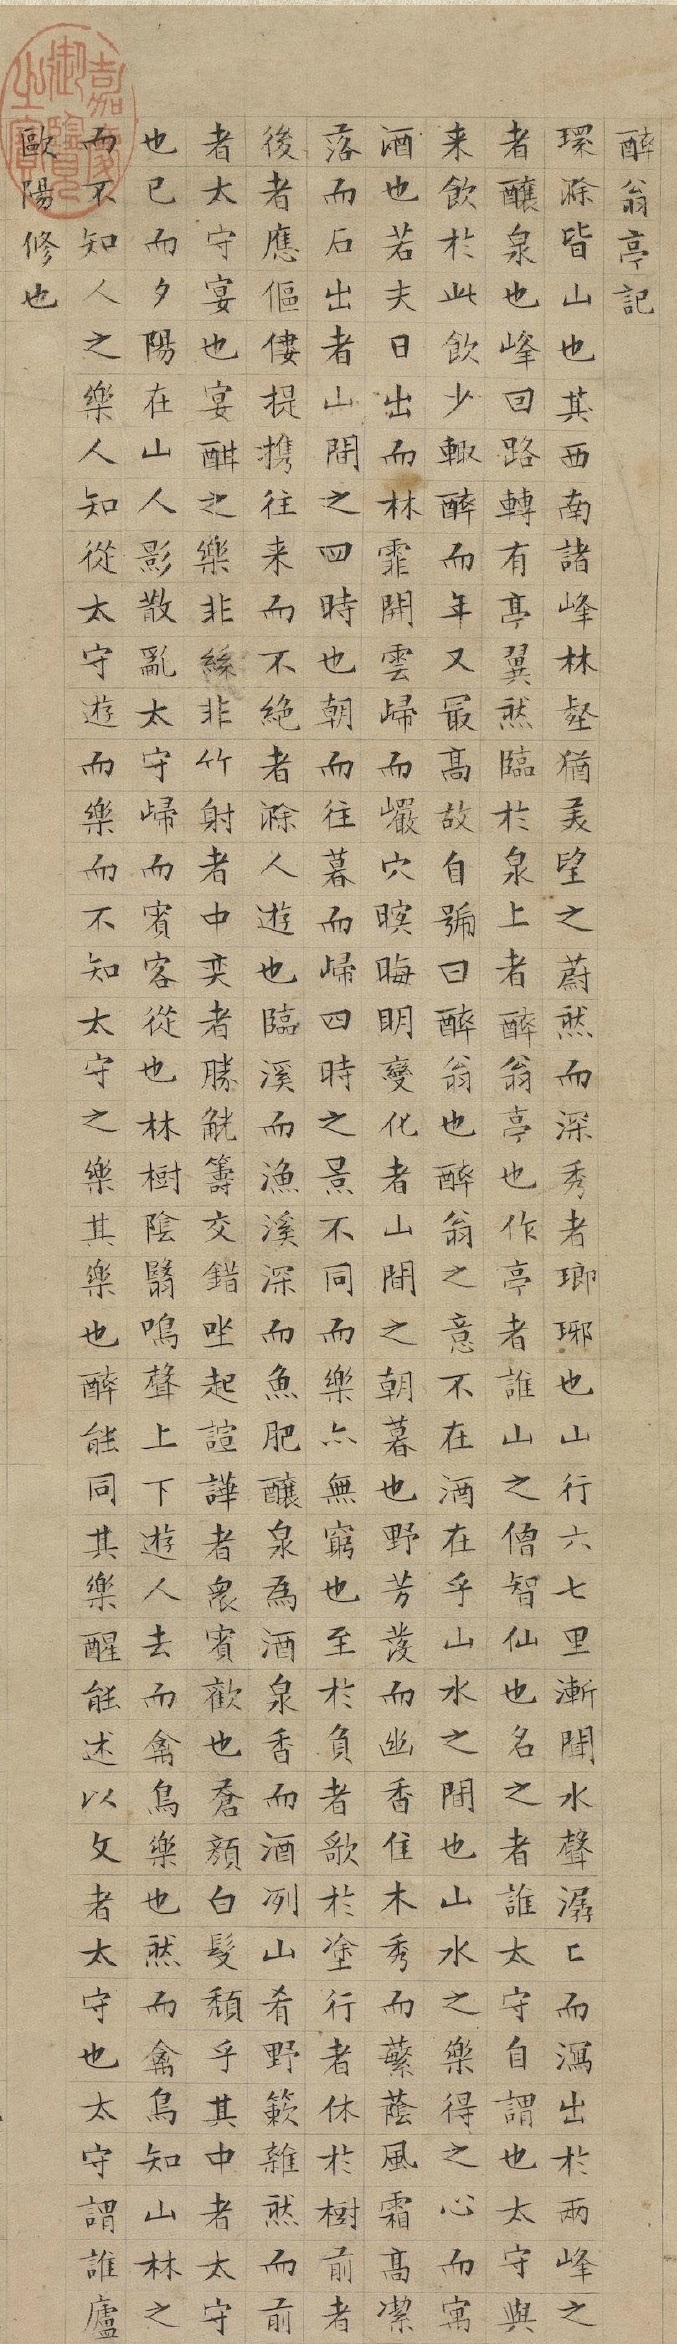 醉翁亭記
環滁皆山也其西南諸峰林壑猶美望之蔚然而深秀者瑯琊也山行六七里漸聞水聲潺〻而瀉出於兩峰之
者釀泉也峰回路轉有亭翼然臨於泉上者醉翁亭也作亭者誰山之僧智仙也名之者誰太守自謂也太守與
来飲於此飲少輒醉而年又最高故自號曰醉翁也醉翁之意不在酒在乎山水之間也山水之樂得之心而寓
酒也若夫日出而林霏開雲歸而巖穴暝晦明變化者山間之朝暮也野芳發而幽香佳木秀而繁蔭風霜高潔
落而石出者山間之四時也朝而往暮而歸四時之景不同而樂亦無窮也至於負者歌於塗行者休於樹前者
後者應傴僂提携往来而不絶者滁人遊也臨溪而漁溪深而魚肥釀泉為酒泉香而酒冽山肴野簌雜然而前
者太守宴也宴酣之樂非絲非竹射者中奕者勝觥籌交錯坐起諠譁者衆賓歡也蒼顏白髮頹乎其中者太守
也已而夕陽在山人影散亂太守歸而賓客從也林樹陰翳鳴聲上下遊人去而禽鳥樂也然而禽鳥知山林之
而不知人之樂人知從太守遊而樂而不知太守之樂其樂也醉能同其樂醒能述以文者太守也太守謂誰廬
歐陽修也
嘉慶御覽之寶